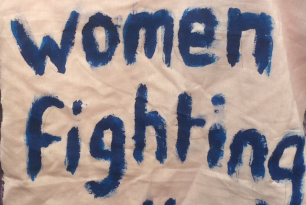 women
Fighting